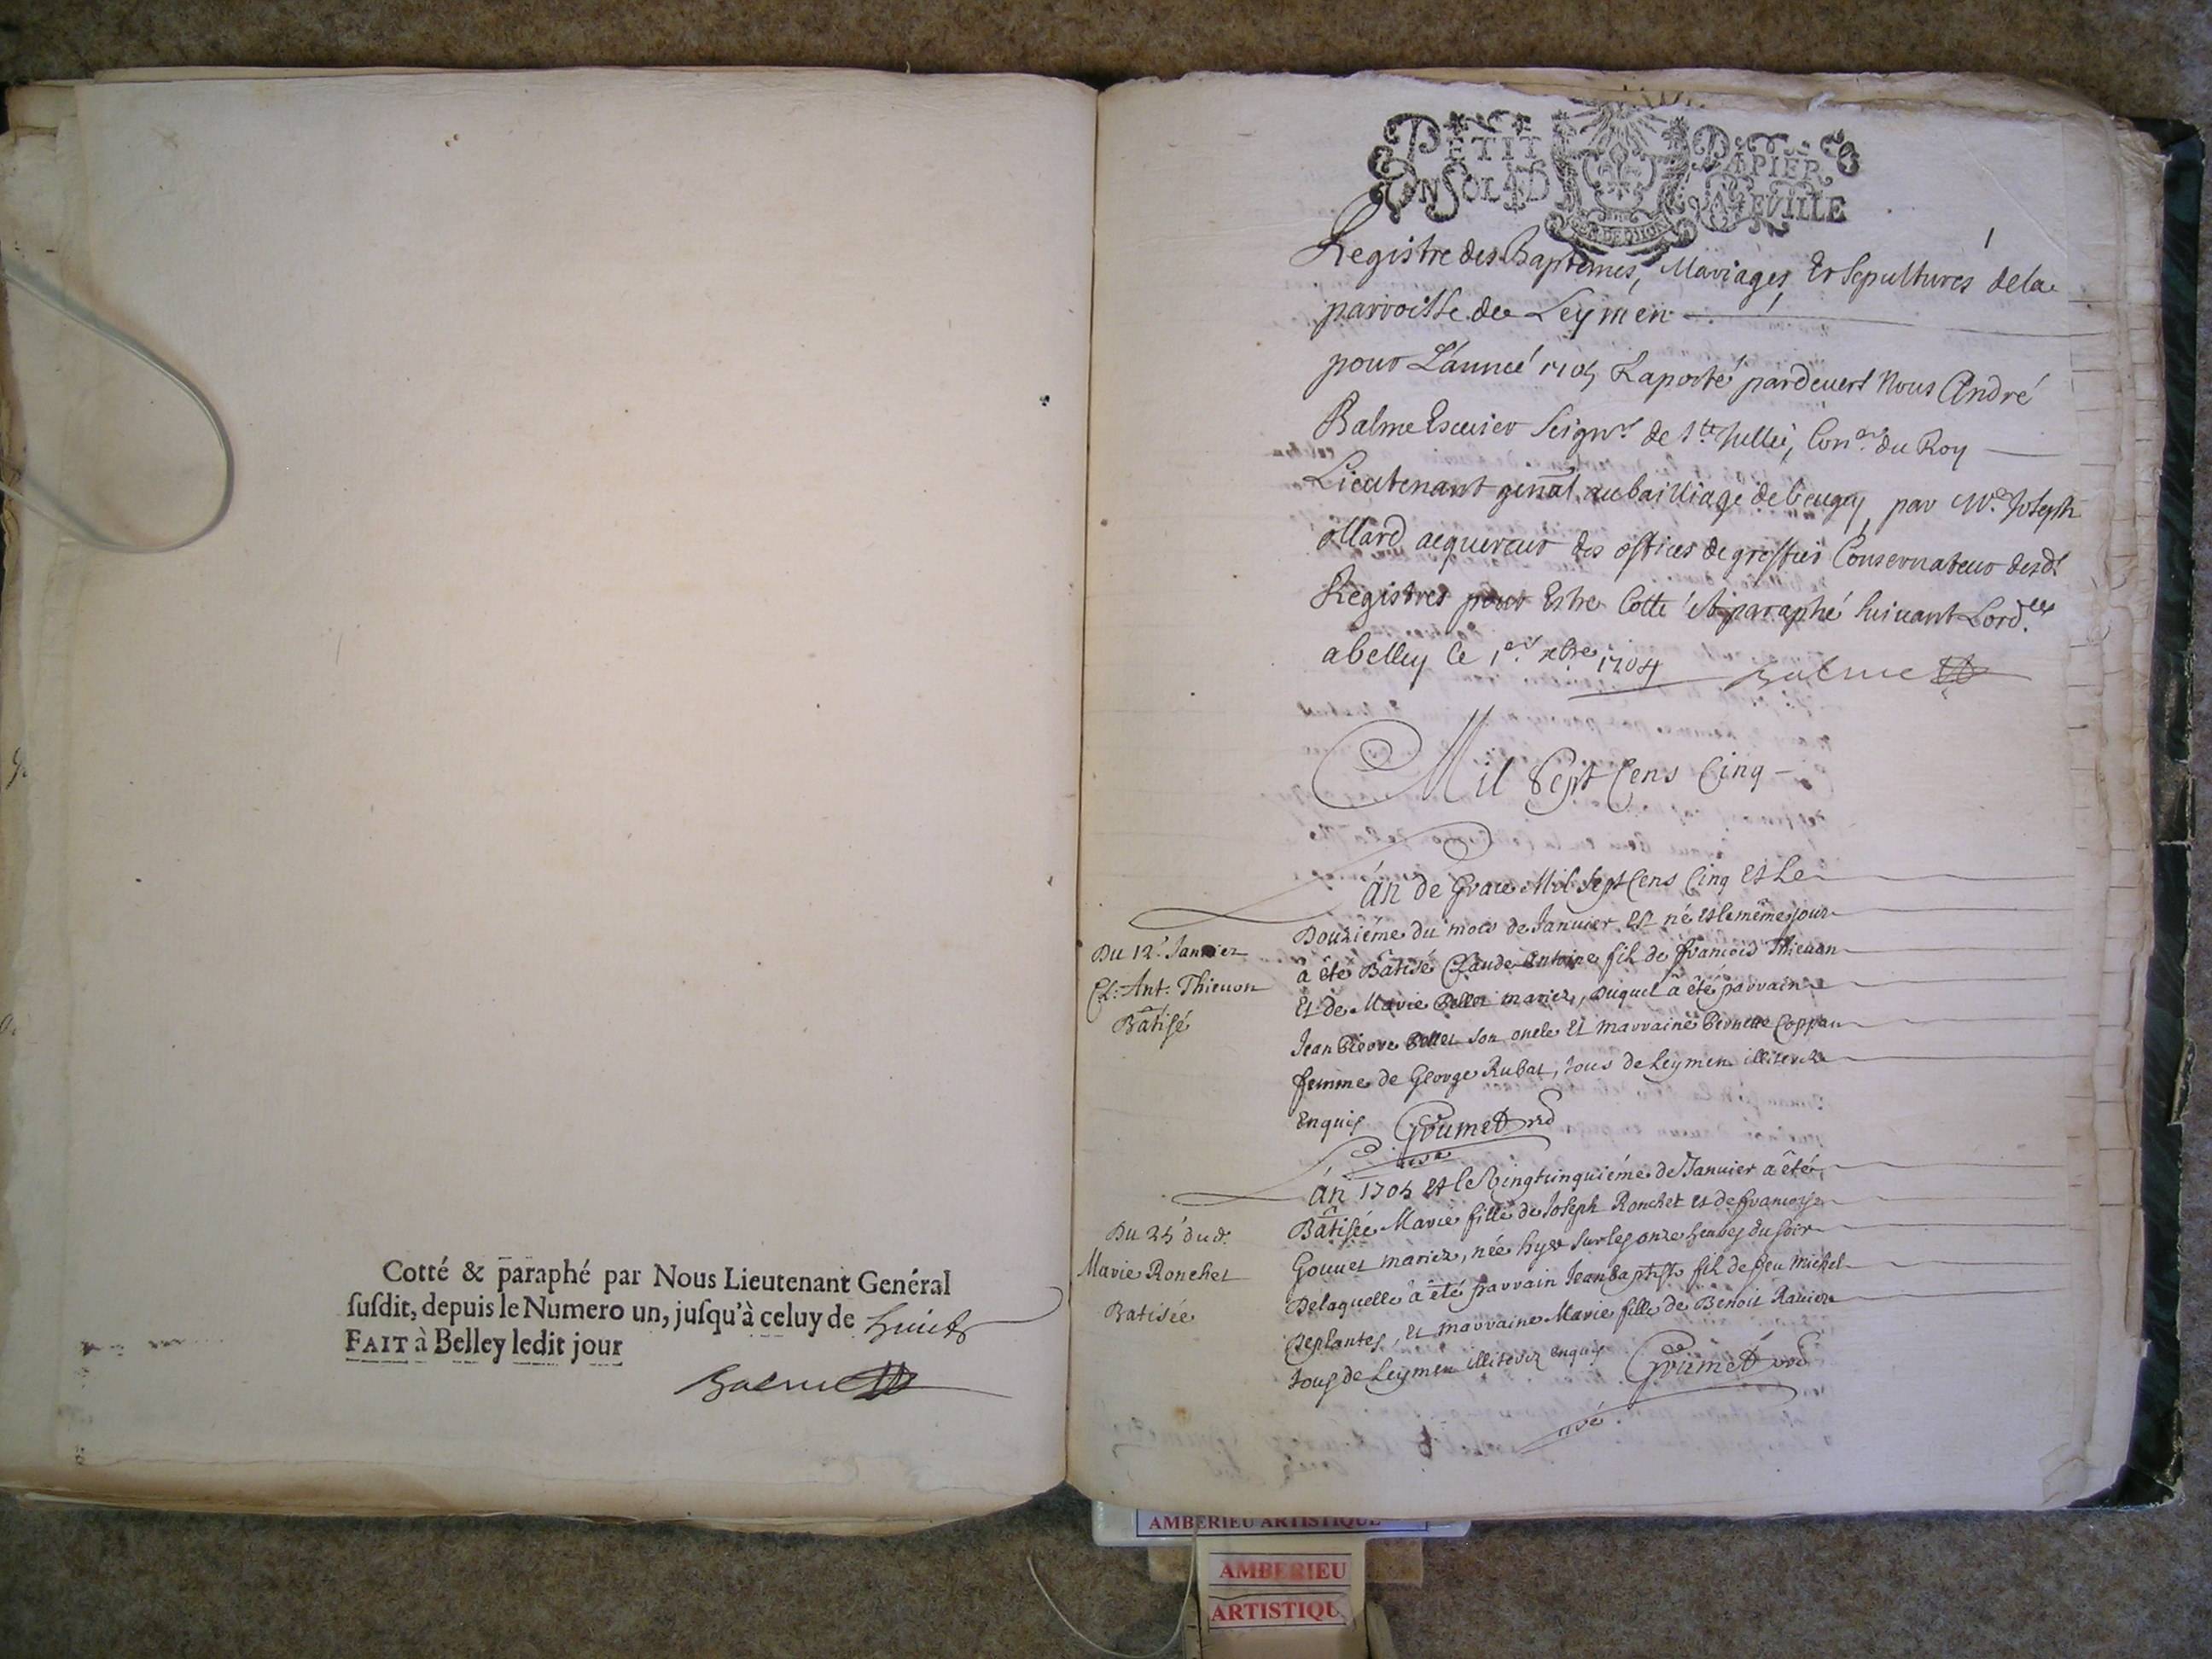 Cotté & paraphé par Nous Lieutenant Genéral
susdit, depuis le Numero un, jusqu'à celuy de huict
FAIT à Belley ledit jour
Balme
PETIT PAPIER
UN SOL LAD GEVILLE
1
Registre des Baptemes, Mariages, Et sepultures de la
parroisse de Leymen
pour L'année 1705 Raporté pardevert Nous André
Balme Escuier seignr. de Ste. Jullie, Coner. du Roy
Lieutenant genāl au bailliage de beugey, par Me. Joseph
ollard acquereur des offices de greffier Conservateur desd.
Registres pour Estre Cotté et paraphé suivant Lord.ce
a belley le 1er. xbre 1704 Balme
Mil Sept Cens Cinq
Du 12e. Janvier
Cl: Ant: Thievon
Bâtisé
L'an de Grace Mil Sept Cens Cinq et le
Douziéme du mois de Janvier est né et le même jour
â êté Bâtisé Claude Antoine fil de francois Thievon
Et de Marie Pellet mariez, Duquel â êté parrain
Jean Pierre Pellet son oncle Et marraine Pernette Coppan
femme de George Rubat, tous de Leymen illiterez
Enquis Groumet
curé
Du 25e dud.
Marie Ronchet
Batisée
L'an 1705 et le Vingtcinquiéme de Janvier a êté
Bâtisée Marie fille de Joseph Ronchet et de francoise
Gouvet mariez, née hyer sur les onze heures du soir
Delaquelle â êté parrain Jean baptiste fil de feu michel
Deplantes, Et marraine Marie fille de Benoit Ravier
tous de Leymen illiterez enquis Groumet
curé
AMBERIEU ARTISTIQUE
AMBERIEU
ARTISTIQU